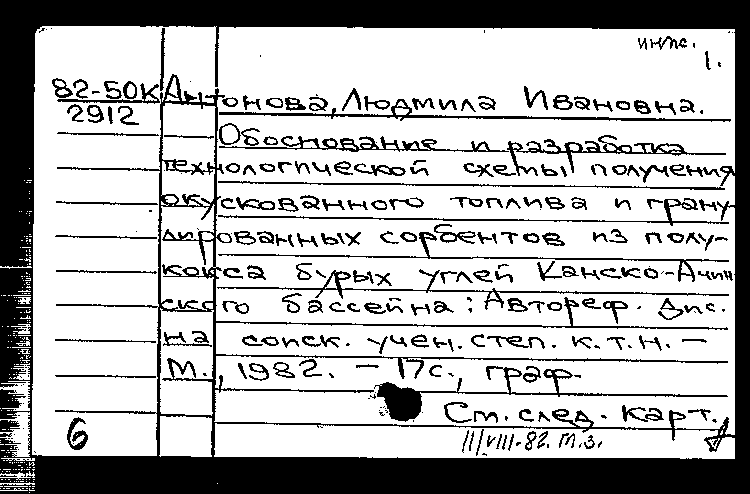 1.
82-50К Антонова, Людмила Ивановна.
2912
Обоснование и разработка
технологической схемы получения
окускованного топлива и грану-
лированных сорбентов из полу-
кокса бурых углей Канско-Ачин
ского бассейна: Автореф. Дис.
на соиск. учен. степ. к.т.н. –
М., 1982. – 17с., граф.
См. след. карт.
6
11/VIII-82. т.з.